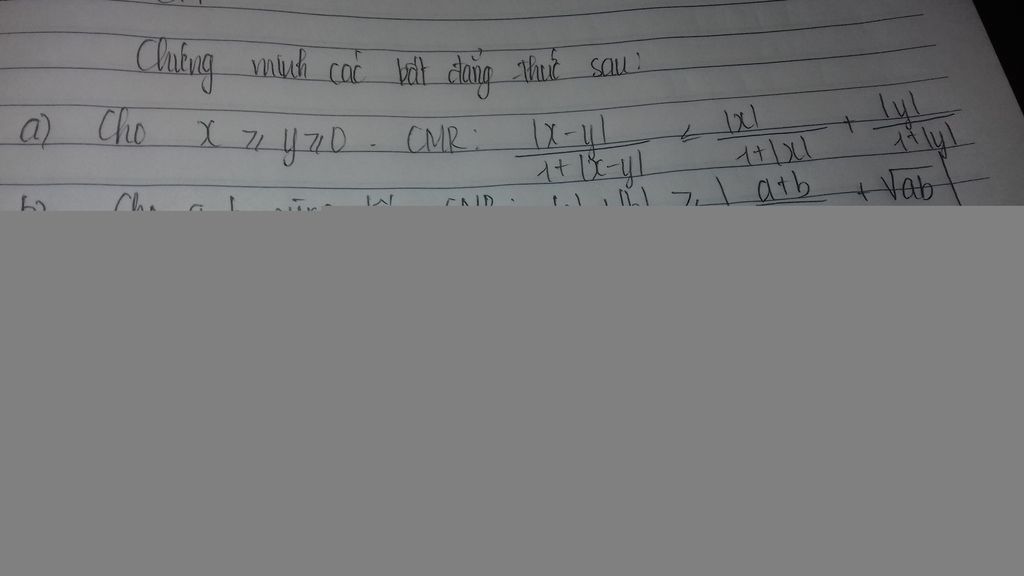 Chứng minh các bất đẳng thức sau:
a) Cho x ≥ y ≥ 0. CMR: |x-y| / 1+|x-y| ≤ |x| / 1+|x| + |y| / 1+|y|
a+b + √ab |